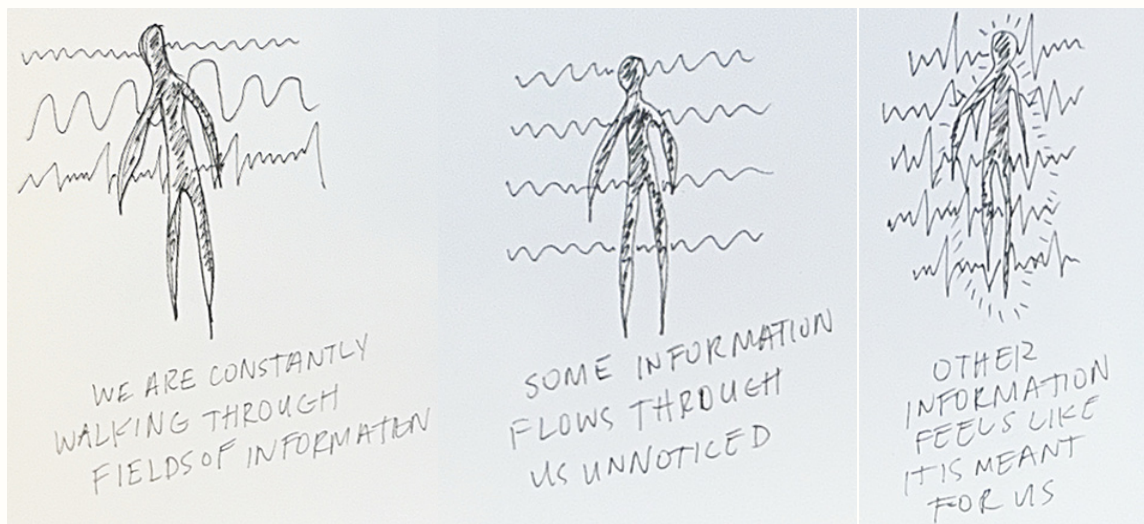 WE ARE CONSTANTLY
WALKING THROUGH
FIELDS OF INFORMATION
SOME INFORMATION
FLOWS THROUGH
US UNNOTICED
OTHER
INFORMATION
FEELS LIKE
IT IS MEANT
FOR US